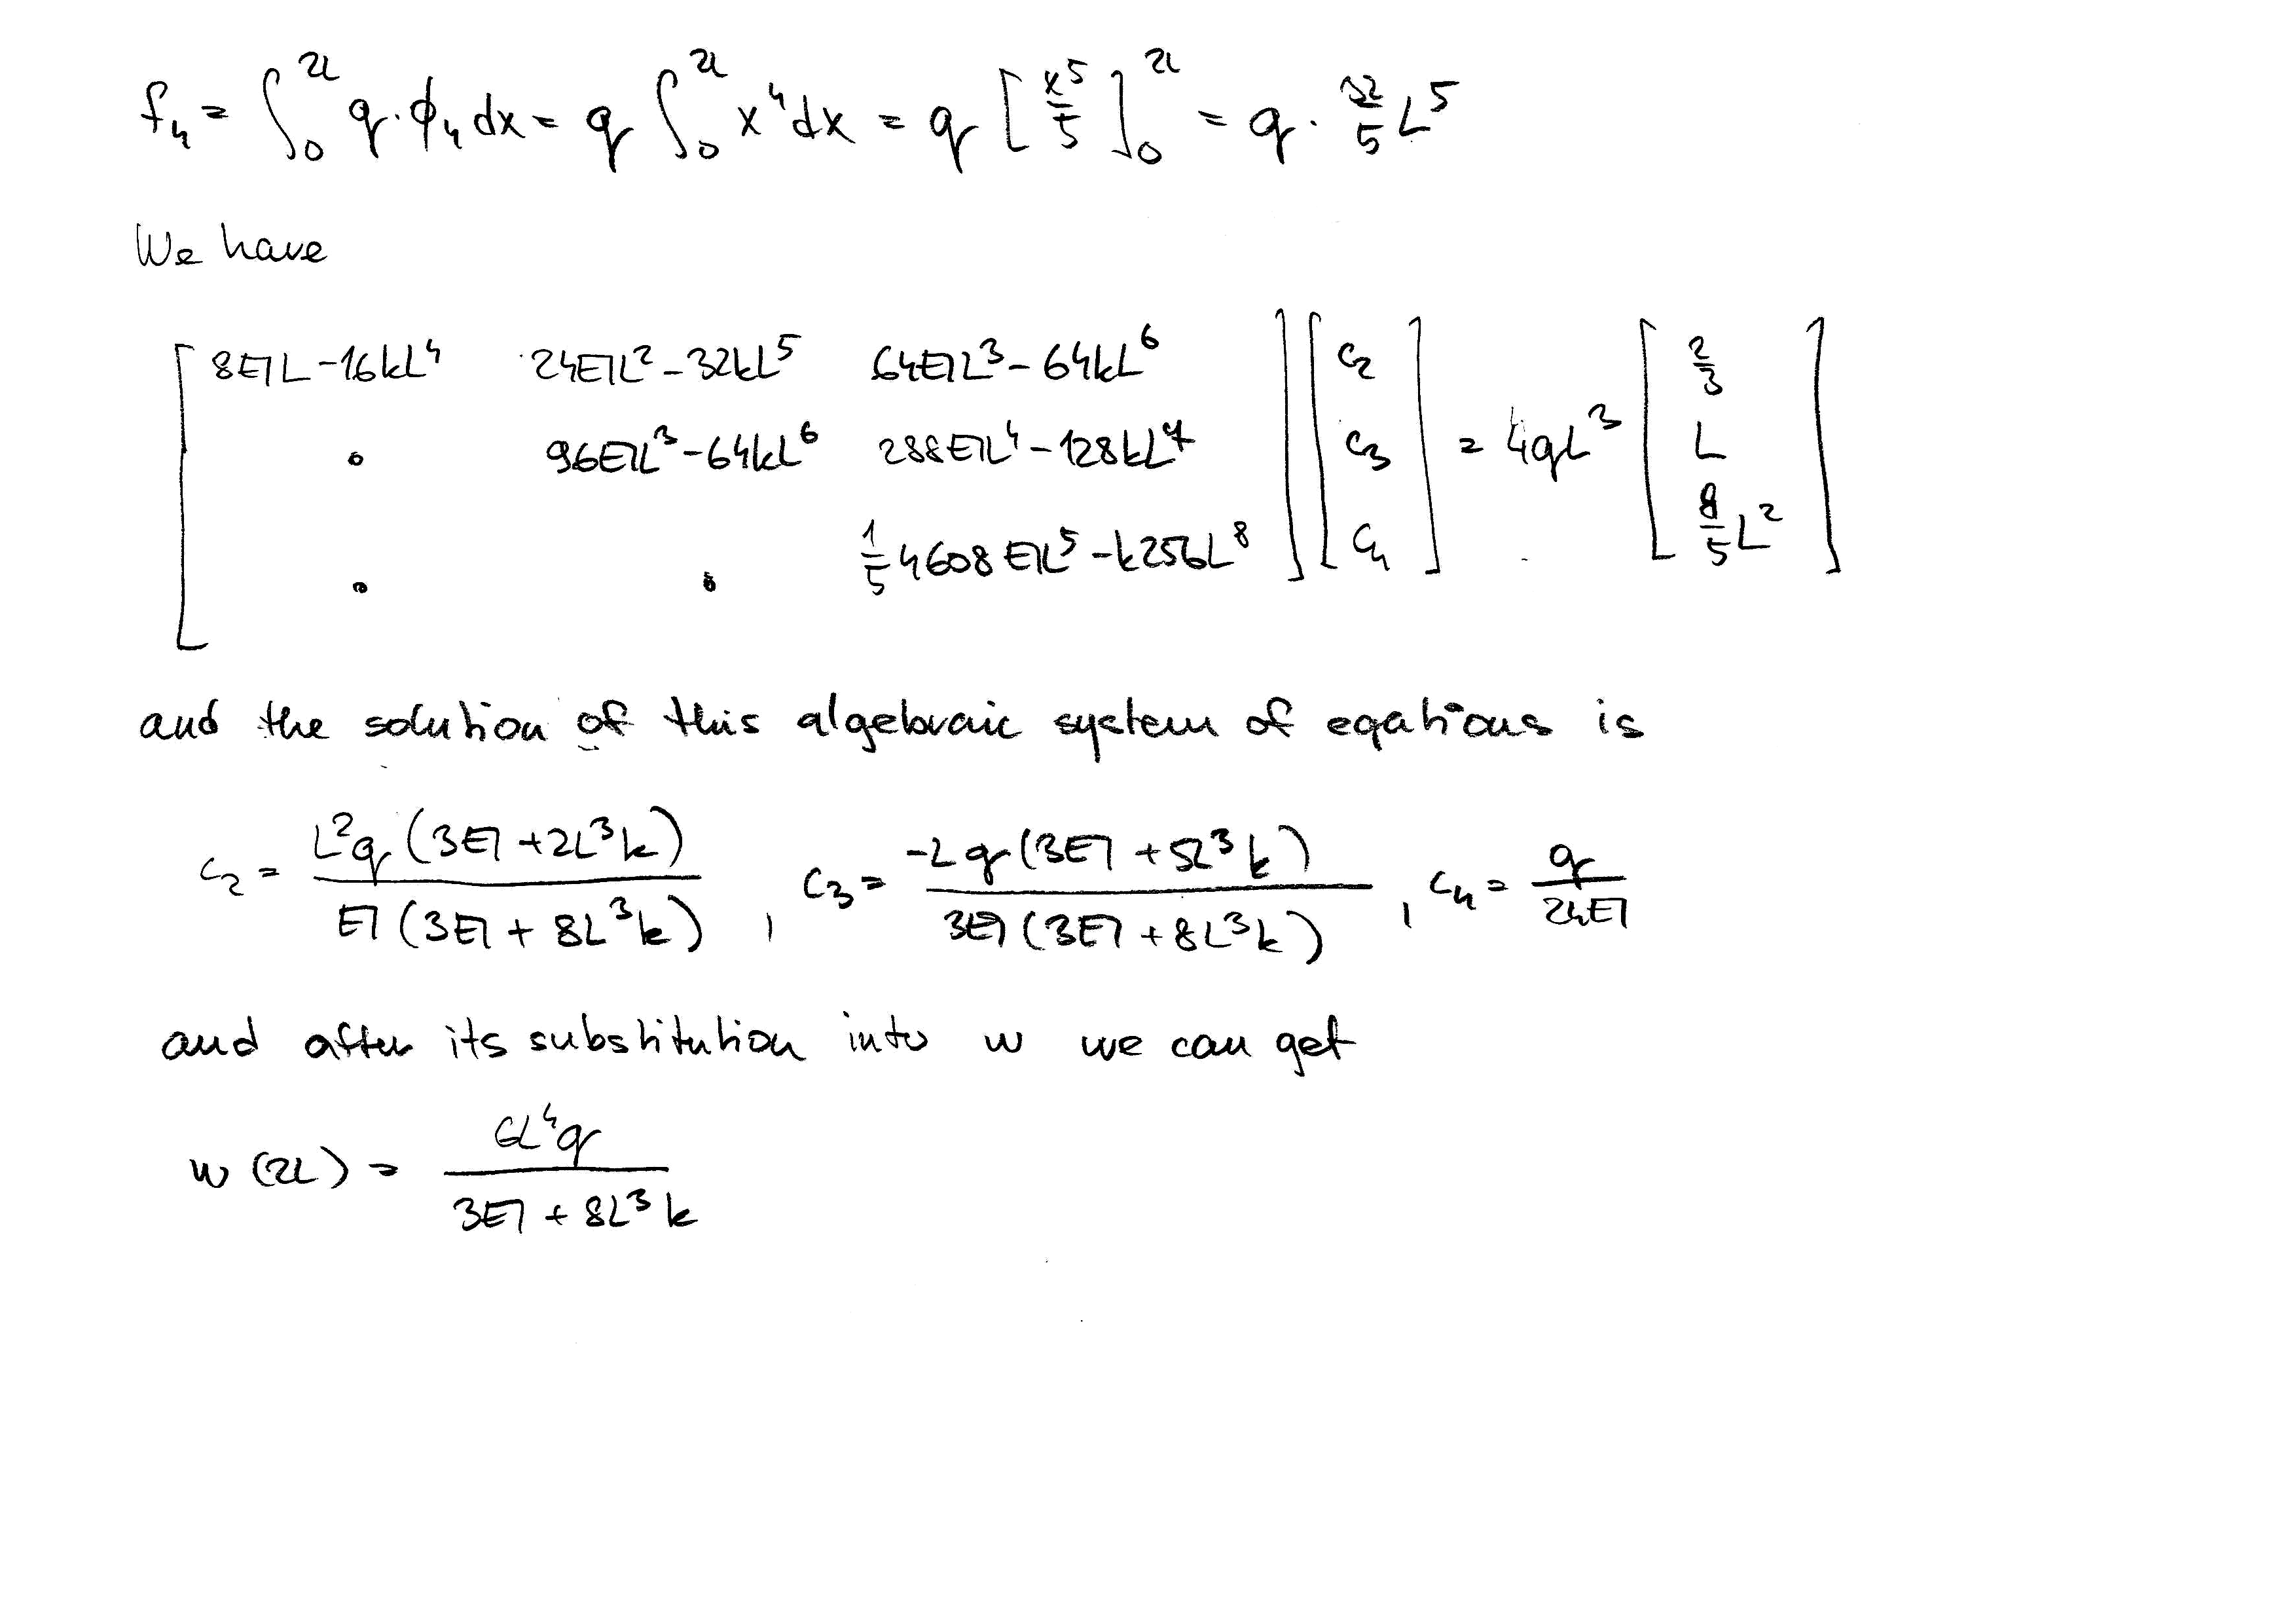 f₄ = ∫₀²ᴸ q·ϕ₄ dx = q ∫₀²ᴸ x⁴dx = q [x⁵/5]₀²ᴸ = q · 32/5 L⁵
We have
[ 8EIL-16kL⁴ 24EIL²-32kL⁵ 64EIL³-64kL⁶ ] [ c₂ ] [ 2/3 ]
[ • 96EIL³-64kL⁶ 288EIL⁴-128kL⁷ ] [ c₃ ] = 4qL³ [ L ]
[ • • 1/5 4608EIL⁵-k256L⁸ ] [ c₄ ] [ 8/5 L² ]
and the solution of this algebraic system of eqations is
c₂ = L²q(3EI+2L³k) / EI(3EI+8L³k) , c₃ = -Lq(3EI+5L³k) / 3EI(3EI+8L³k) , c₄ = q / 24EI
and after its substitution into w we can get
w(2L) = 6L⁴q / 3EI+8L³k